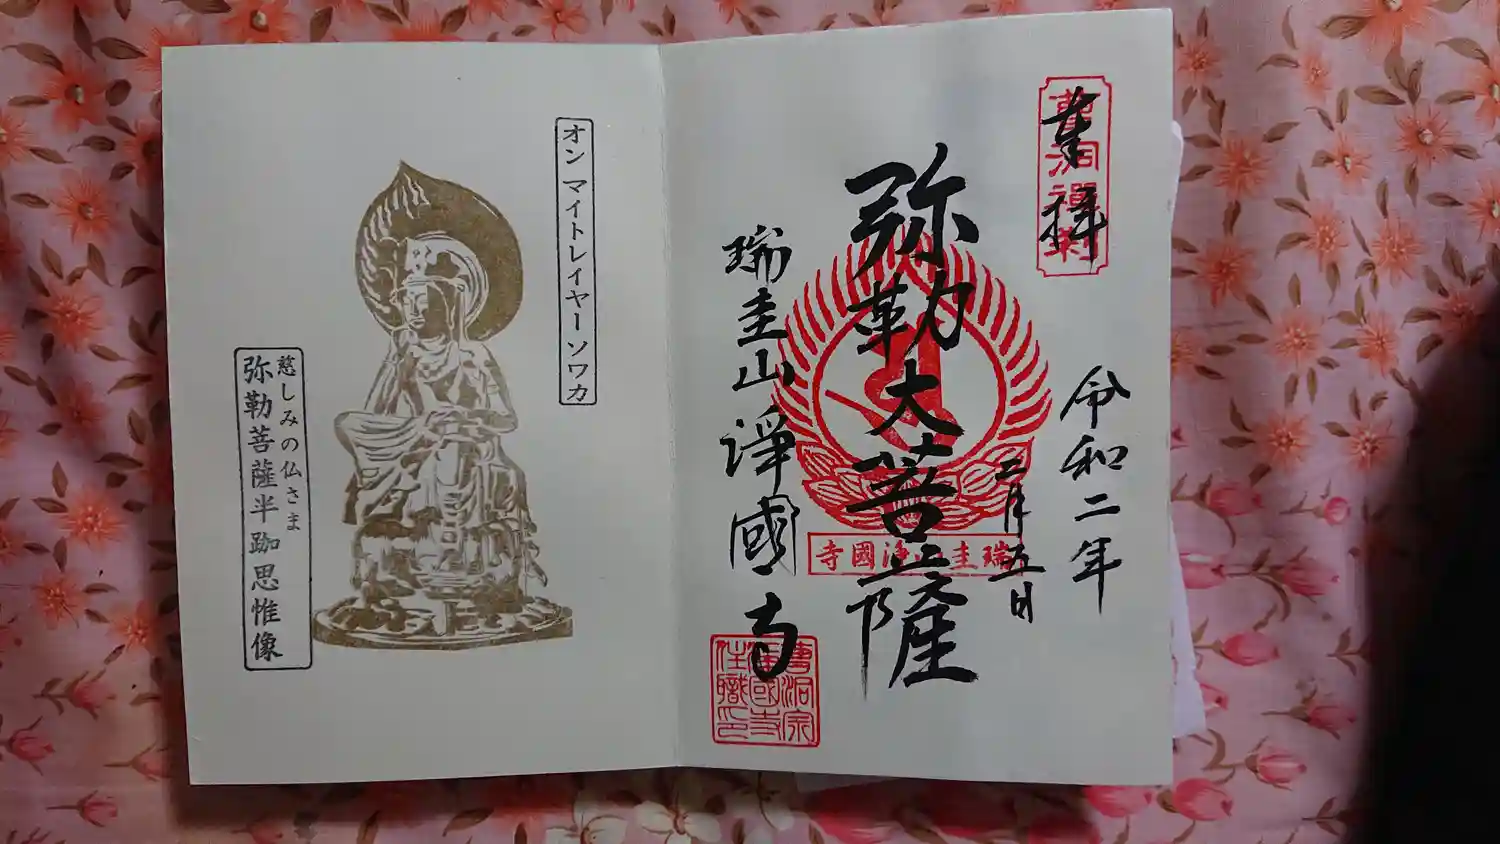 奉拝
曹洞禅宗
令和二年
二月五日
弥勒大菩薩
瑞圭山浄國寺
瑞圭山浄國寺
曹洞宗
浄國寺
住職印
オン マイトレイヤー ソワカ
慈しみの仏さま
弥勒菩薩半跏思惟像